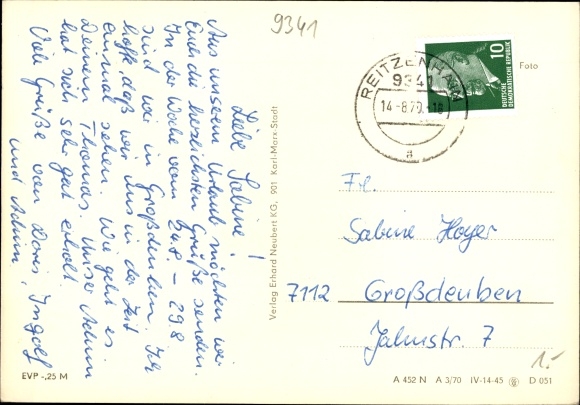 9341
Liebe Sabine!
Aus unserem Urlaub möchten wir
Euch die herzlichsten Grüße senden.
In der Woche vom 24.8. – 29.8
sind wir in Großdeuben. Ich
hoffe, daß wir uns in der Zeit
einmal sehen. Wie geht es
Deinem Thomas. Unser Achim
hat sich sehr gut erholt.
Viele Grüße von Doris, Ingolf
und Achim
EVP -,25 M
Verlag Erhard Neubert KG, 901 Karl-Marx-Stadt
REITZENHAIN
9341
14-8.70.-18
a
10
DEUTSCHE
DEMOKRATISCHE REPUBLIK
Foto
Frl.
Sabine Hoyer
7112 Großdeuben
Jahnstr. 7
1.-
A 452 N A 3/70 IV-14-45 D 051